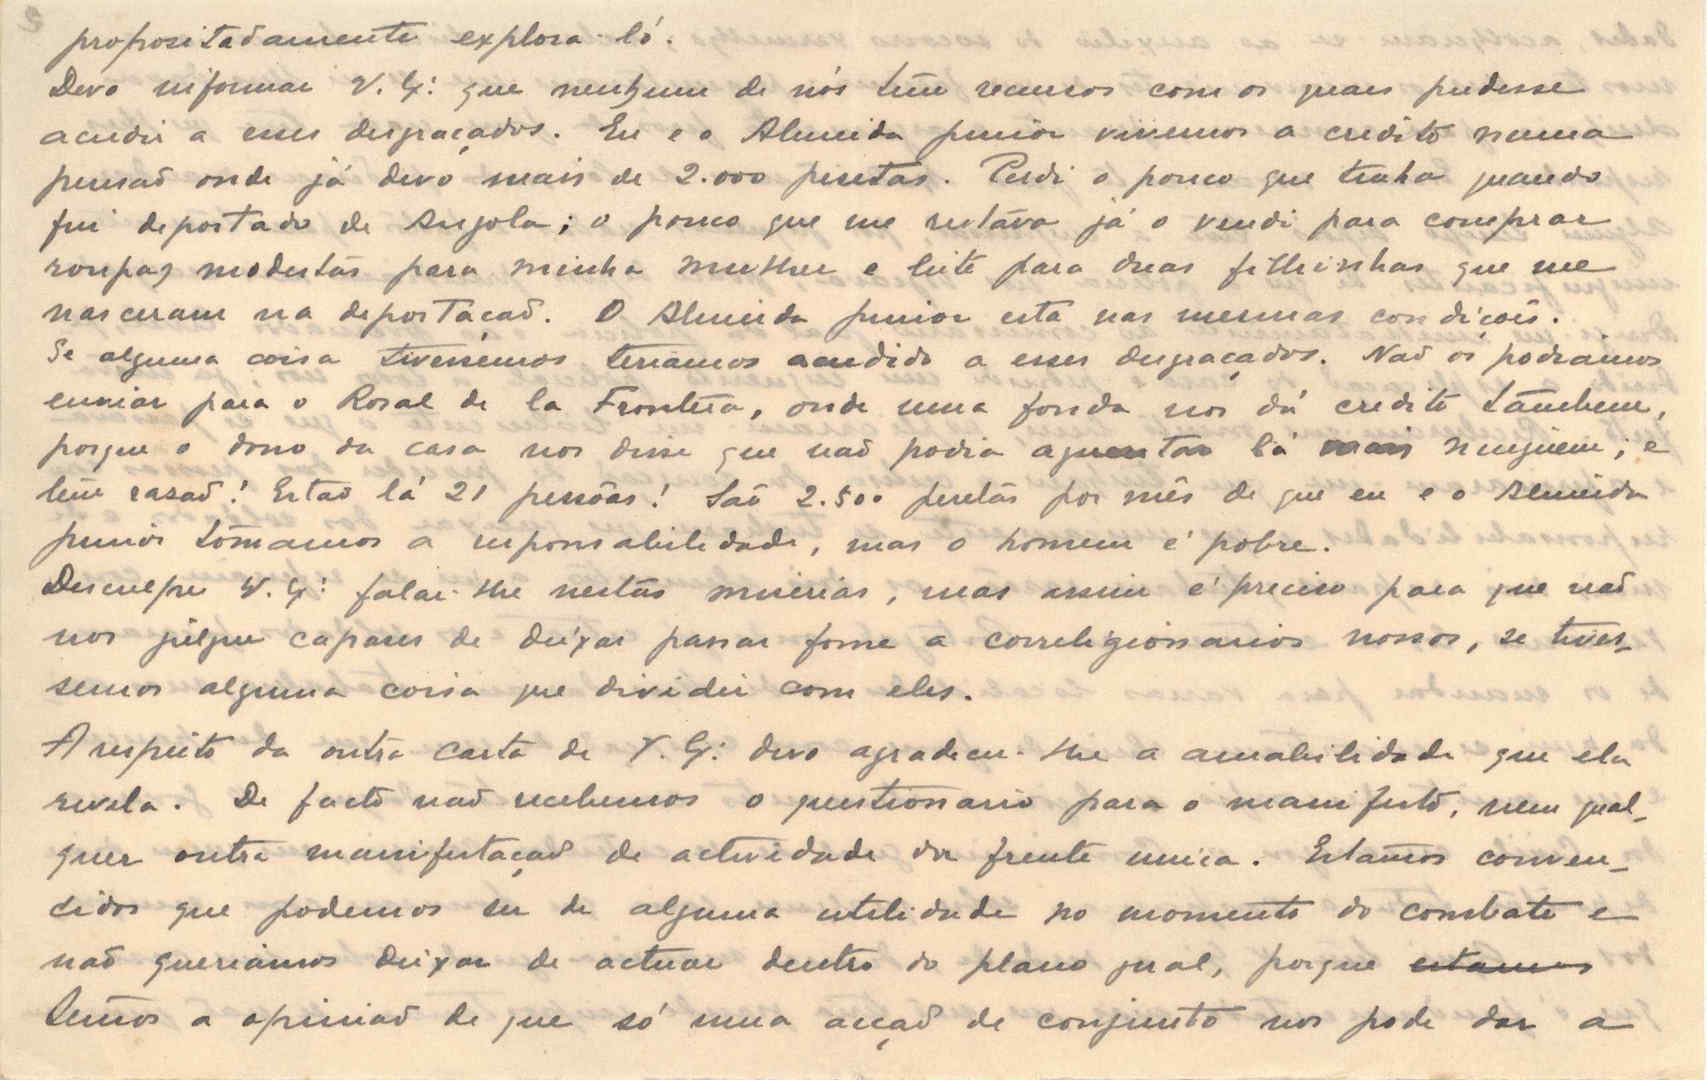 propositadamente explora-ló.
Devo informar V. Ex: que nenhum de nós têm recursos com os quaes pudesse
acudir a esses desgraçados. Eu e o Almeida Junior vivemos a credito numa
pensaõ onde já devo mais de 2.000 pesetas. Perdi o pouco que tinha quando
fui deportado de Angola; o pouco que me restáva já o vendi para comprar
roupas modestas para minha mulher e leite para duas filhinhas que me
nasceram na deportaçaõ. O Almeida Junior está nas mesmas condições.
Se alguma coisa tivessemos teriamos acudido a esses desgraçados. Naõ os podiamos
enviar para o Rosal de la Frontera, onde uma fonda nos dá credito tambem,
porque o dono da casa nos disse que naõ podia aguentar lá mais ninguem; e
têm rasaõ! Estaõ lá 21 pessôas! Saõ 2.500 pesetas por mês de que eu e o Almeida
Junior tomamos a responsabilidade, mas o homem é pobre.
Desculpe V. Ex: falar-lhe nestas miserias, mas assim é preciso para que naõ
nos julgue capazes de deixar passar fome a correligionarios nossos, se tives-
semos alguma coisa que dividir com eles.
A respeito da outra carta de V. Ex: devo agradecer-lhe a amabilidade que ela
revela. De facto naõ recebemos o questionario para o manifesto, nem qual-
quer outra manifestaçaõ de actividade da frente unica. Estamos conven-
cidos que podemos ser de alguma utilidade no momento do combate e
naõ queriamos deixar de actuar dentro do plano geral, porque estamos
temos a opiniaõ de que só uma acçaõ de conjunto nos pode dar a